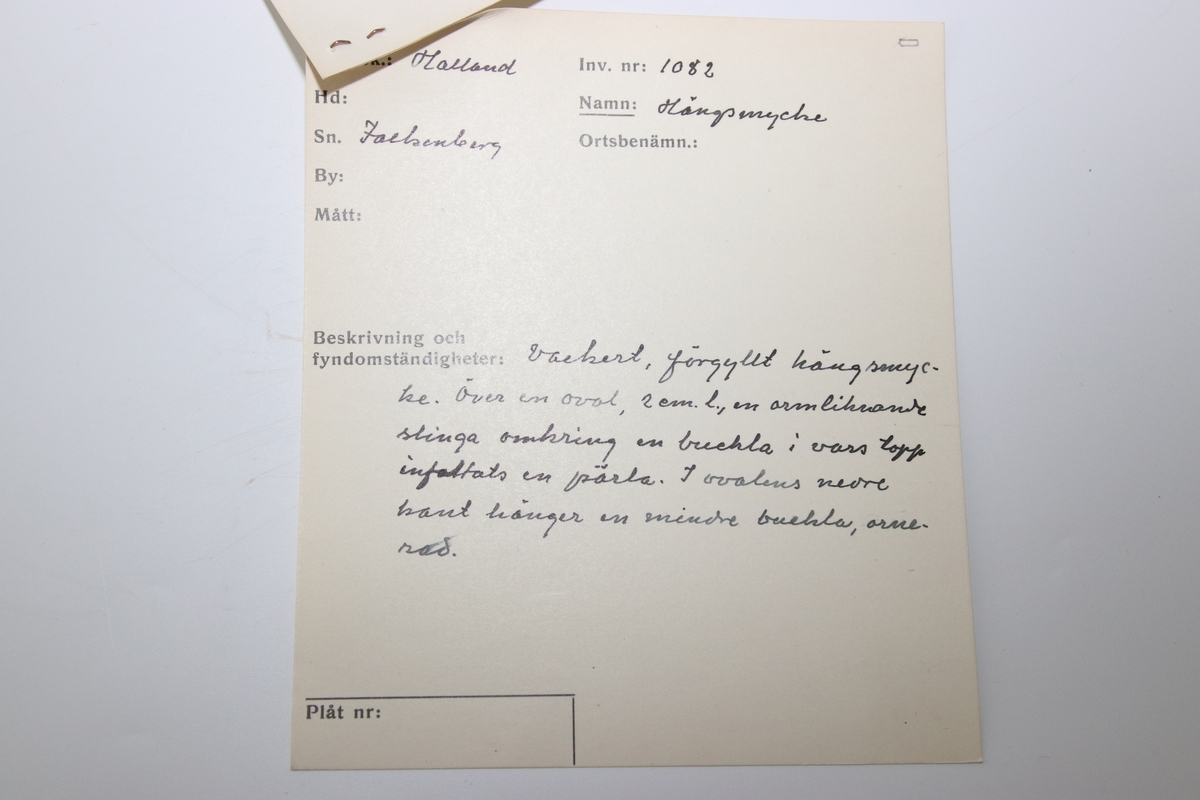 k.: Halland
Inv. nr: 1082
Hd:
Namn: Hängsmycke
Sn. Falkenberg
Ortsbenämn.:
By:
Mått:
Beskrivning och
fyndomständigheter: Vackert, förgyllt hängsmyc-
ke. Över en oval, 2 cm. l., en ormliknande
slinga omkring en buckla i vars topp
infattats en pärla. I ovalens nedre
kant hänger en mindre buckla, orne-
rad.
Plåt nr: